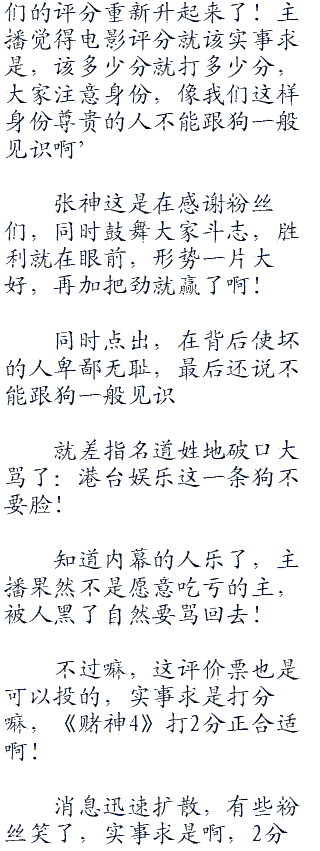 们的评分重新升起来了！主
播觉得电影评分就该实事求
是，该多少分就打多少分，
大家注意身份，像我们这样
身份尊贵的人不能跟狗一般
见识啊’
张神这是在感谢粉丝
们，同时鼓舞大家斗志，胜
利就在眼前，形势一片大
好，再加把劲就赢了啊！
同时点出，在背后使坏
的人卑鄙无耻，最后还说不
能跟狗一般见识
就差指名道姓地破口大
骂了：港台娱乐这一条狗不
要脸！
知道内幕的人乐了，主
播果然不是愿意吃亏的主，
被人黑了自然要骂回去！
不过嘛，这评价票也是
可以投的，实事求是打分
嘛，《赌神4》打2分正合适
啊！
消息迅速扩散，有些粉
丝笑了，实事求是啊，2分